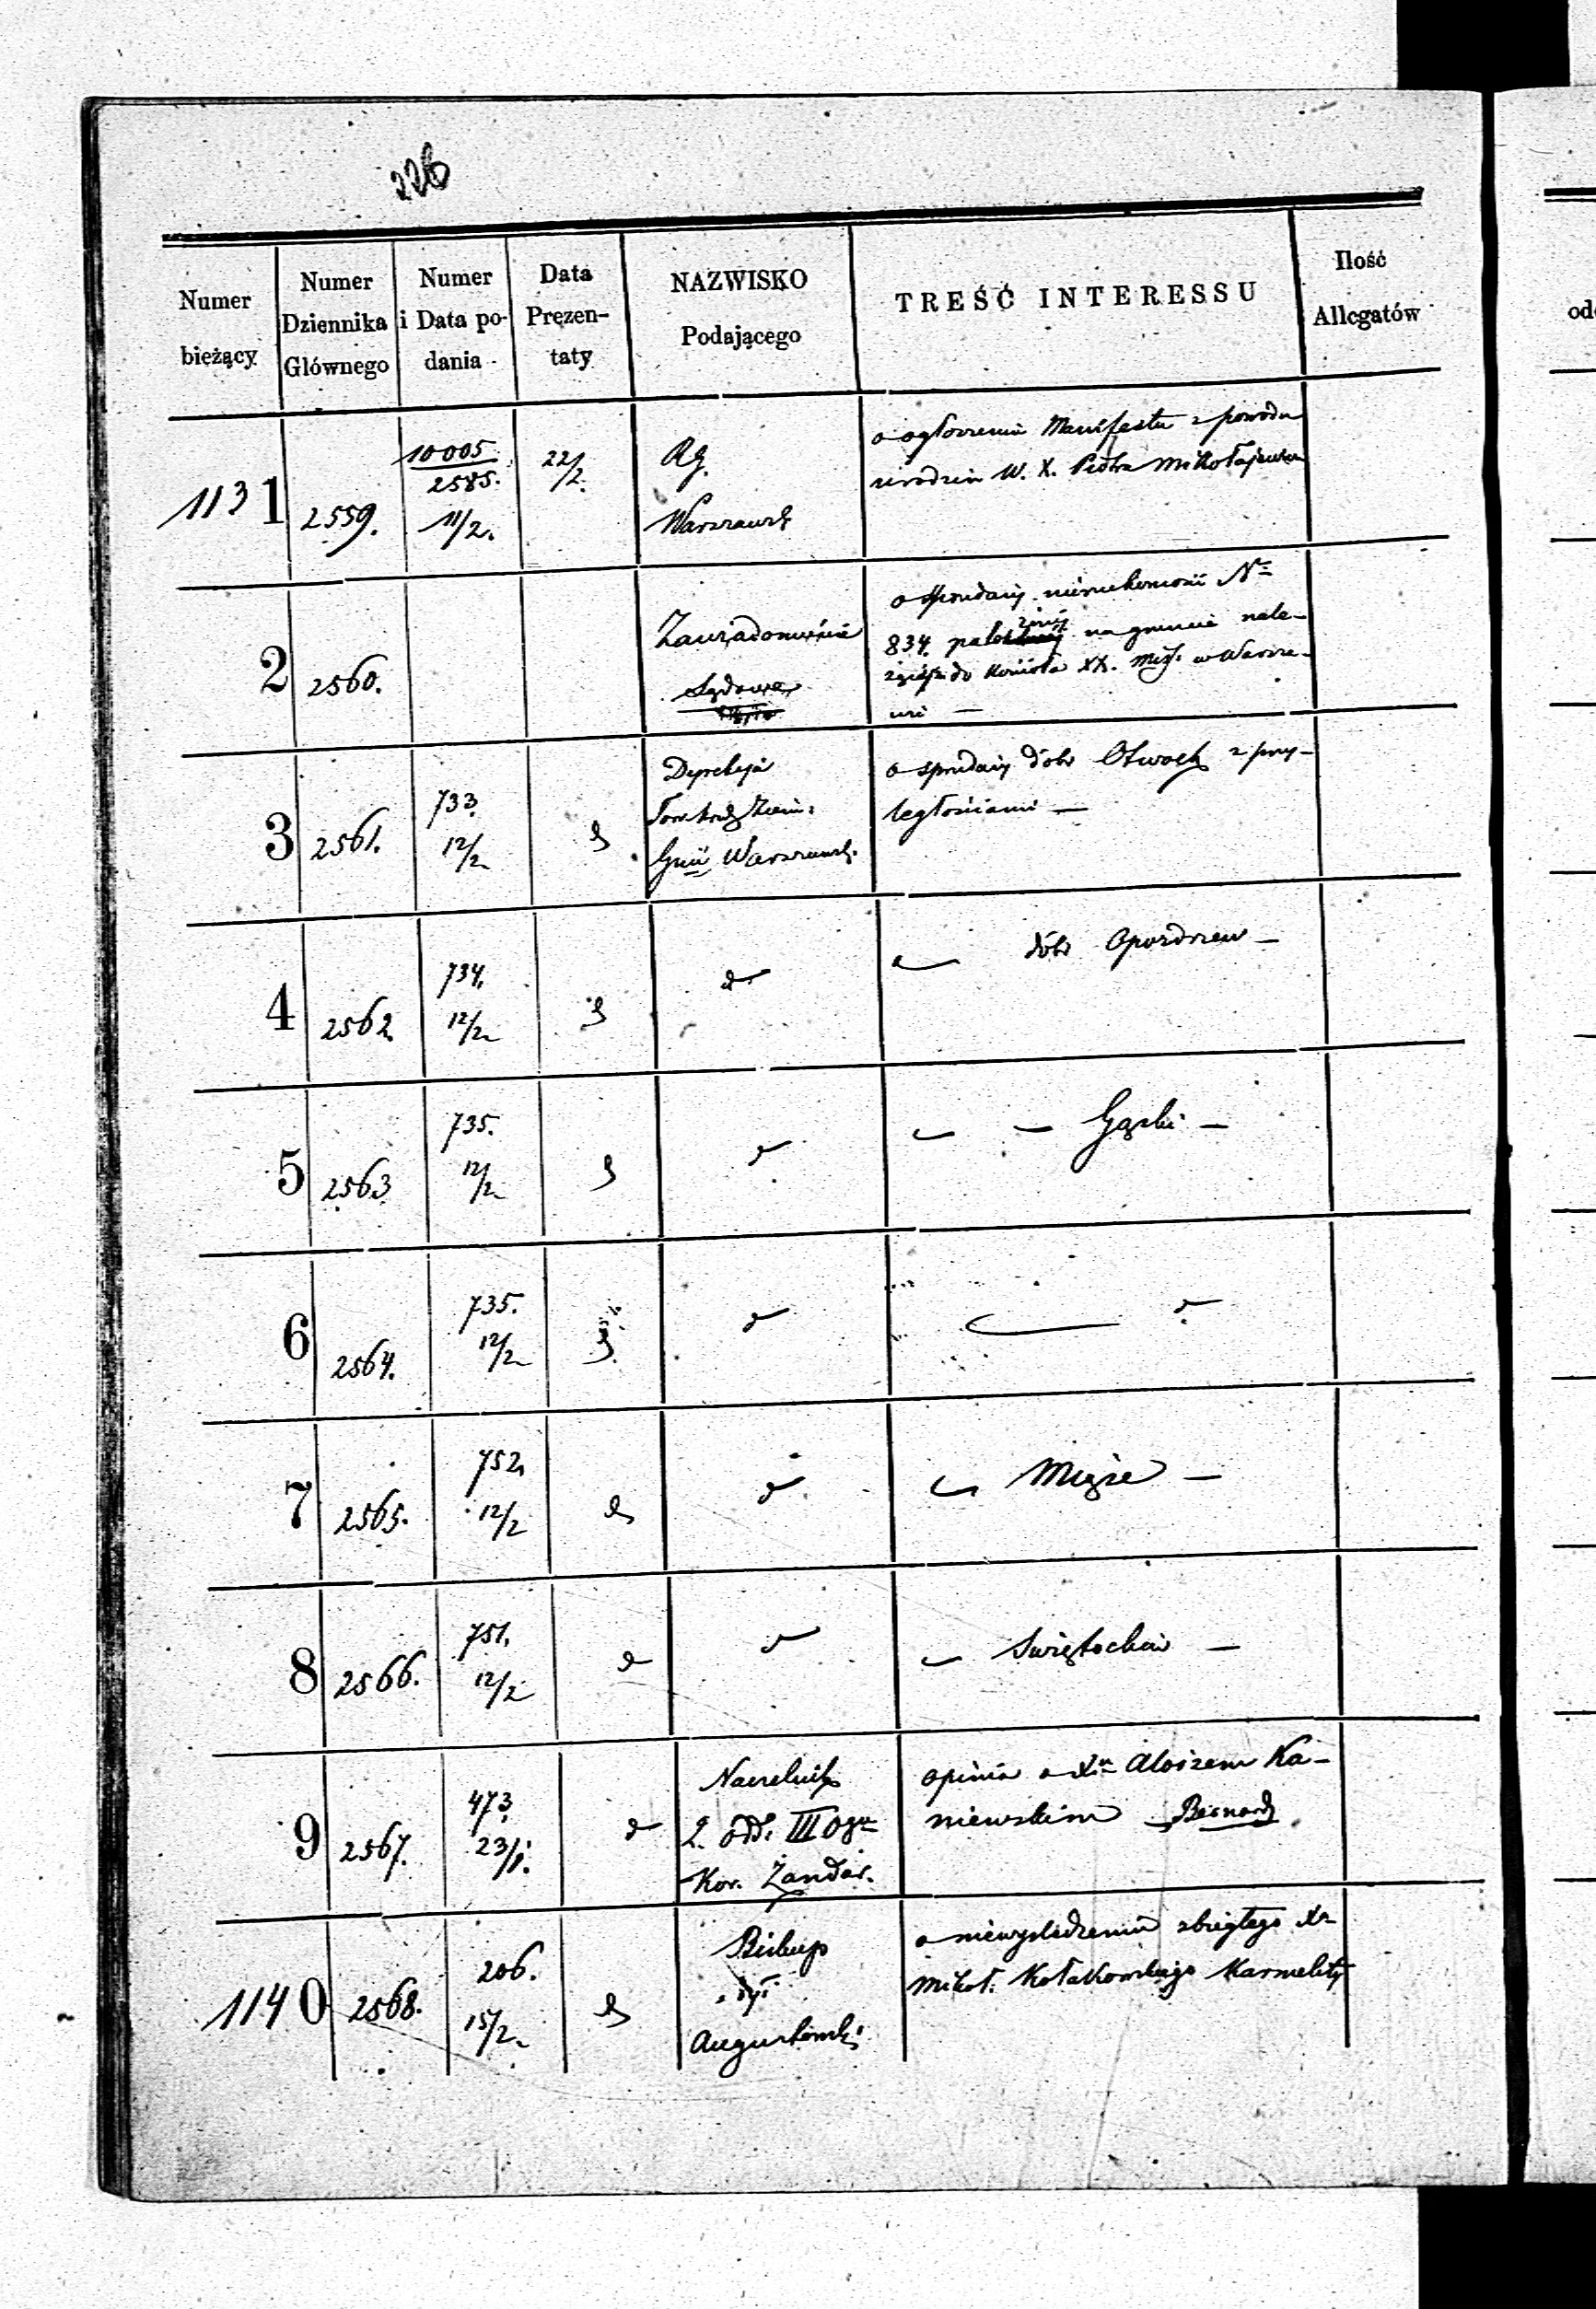 226
Numer bieżący
Numer Dziennika Głównego
Numer i Data podania
Data Prezentaty
NAZWISKO Podającego
TREŚĆ INTERESSU
Ilość Allegatów
1131
2559.
10005
2585.
11/2.
22/2.
RG.
Warszawsk.
o ogłoszeniu Manifestu z powodu
urodzin W. X. Piotra Mikołajewicza
2
2560.
Zawiadomienie
Sądowe
o sprzedaży nieruchomości No
834. na gruncie nale-
żącej do Kościoła XX. Misj. w Warsza-
wie —
3
2561.
733.
12/2
Dyrekcja
Towarz. Ziem:
Gunii Warszawsk.
o sprzedaży dóbr Otwock z przy-
ległościami —
4
2562.
734.
12/2
dóbr Opozdzew —
5
2563
735.
12/2
— Gąski —
6
2564.
735.
12/2
7
2565.
752.
12/2
Miąze —
8
2566.
751.
12/2
Swiętochów —
9
2567.
473.
23/1.
Naczelnik
2. odd. III Ogu
Kor. Żandar.
opinia o Xu Aloizem Ka-
niewskim Bernard
1140
2568.
206.
15/2
Biskup
dyi
Augustowski
o niewyśledzeniu zbiegłego Xa
Mikoł. Kołakowskiego Karmelity